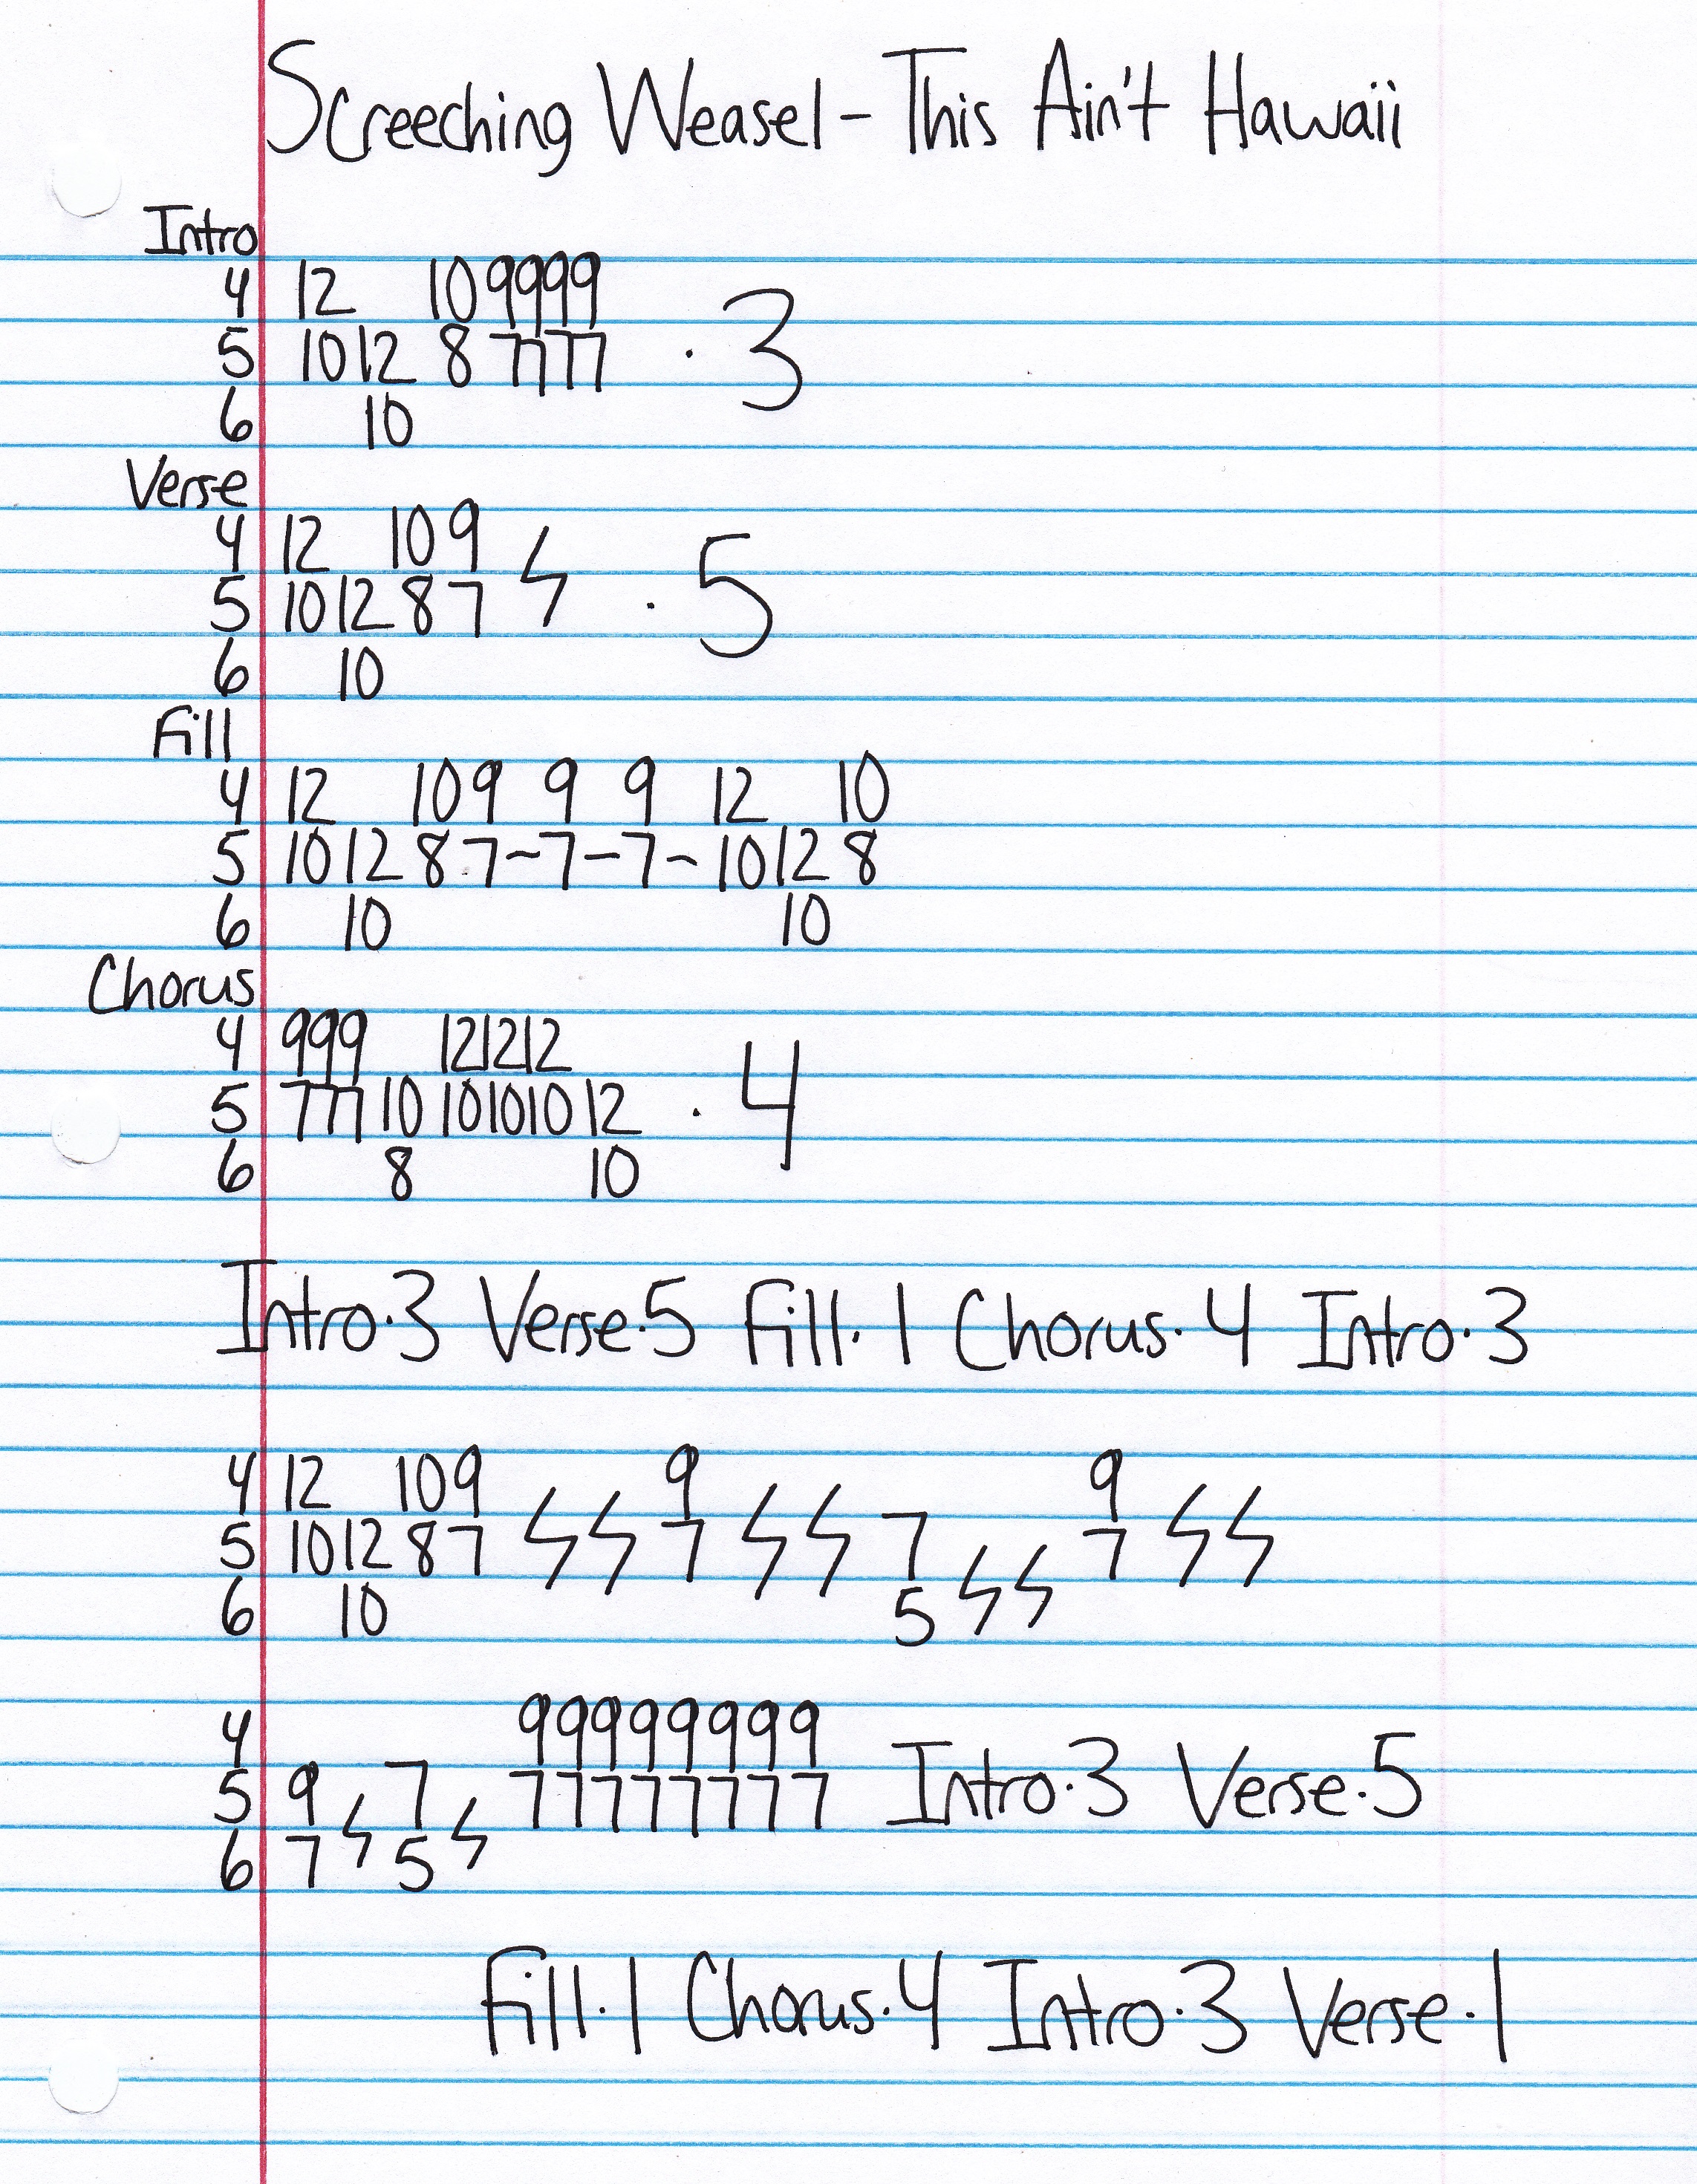 Screeching Weasel - This Ain't Hawaii
Intro
4 12 10 9 9 9 9
5 10 12 8 7 7 7 7 · 3
6 10
Verse
4 12 10 9
5 10 12 8 7 · 5
6 10
Fill
4 12 10 9 9 9 12 10
5 10 12 8 7 ~ 7 - 7 ~ 10 12 8
6 10 10
Chorus
4 9 9 9 12 12 12
5 7 7 7 10 10 10 10 12 · 4
6 8 10
Intro·3 Verse·5 Fill·1 Chorus·4 Intro·3
4 12 10 9 9 9
5 10 12 8 7 7 7 7
6 10 5
4 9 9 9 9 9 9 9 9
5 9 7 7 7 7 7 7 7 7 7 Intro·3 Verse·5
6 7 5
Fill·1 Chorus·4 Intro·3 Verse·1